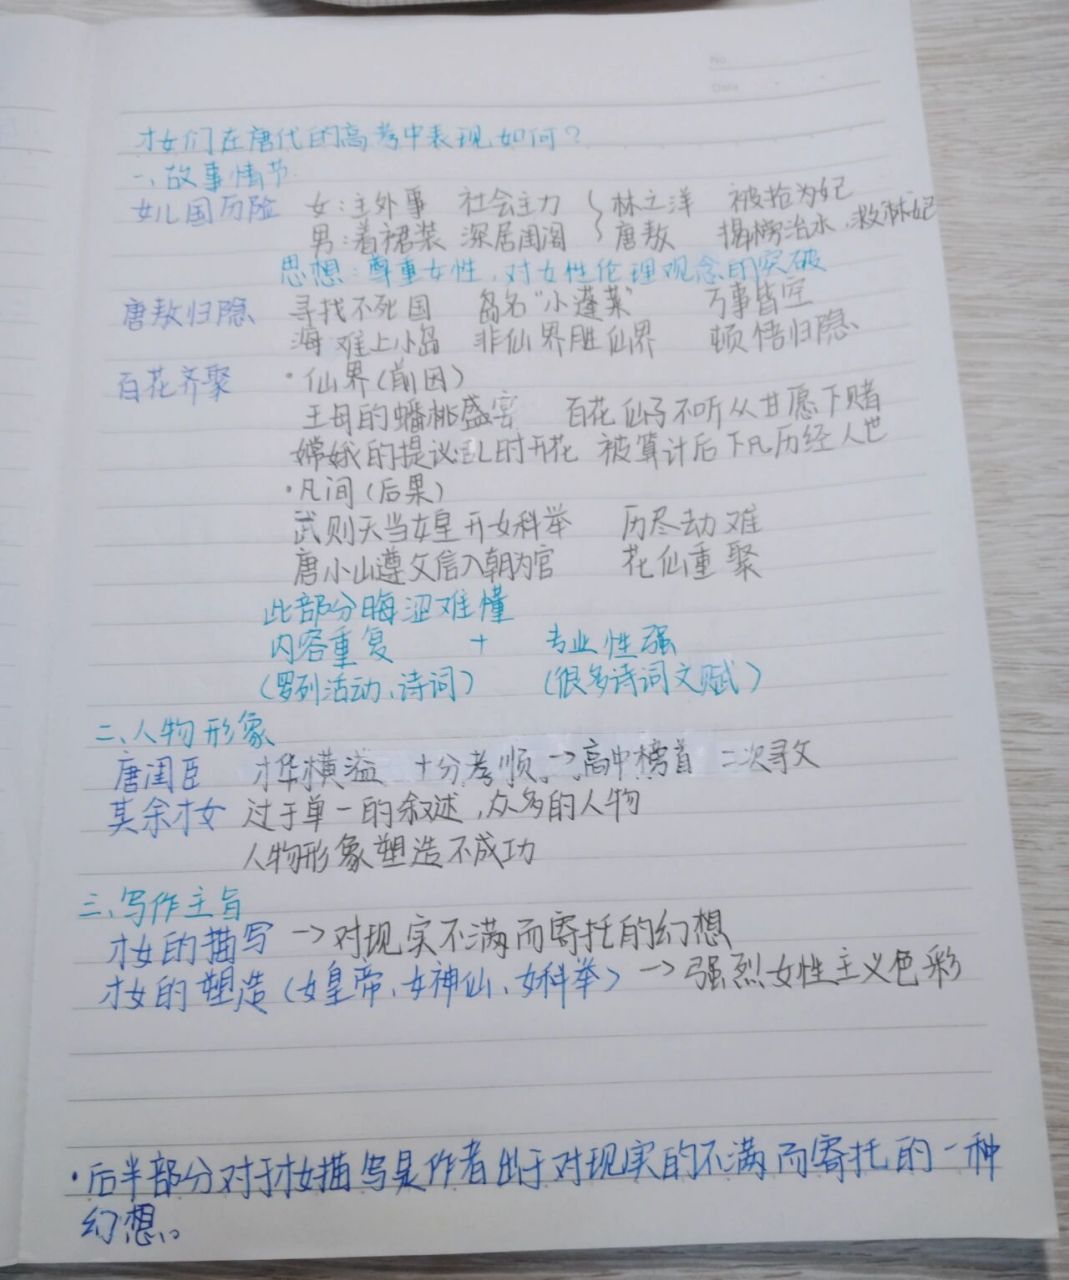 No.
Date
才女们在唐代的高考中表现如何?
一、故事情节
女儿国历险 女:主外事 社会主力 } 林之洋 被抢为妃
男:着裙装 深居闺阁 } 唐敖 揭榜治水,救林妃
思想:尊重女性,对女性伦理观念的突破
唐敖归隐 寻找不死国 岛名“小蓬莱” 万事皆空
海难上小岛 非仙界胜仙界 顿悟归隐
百花齐聚 ·仙界(前因)
王母的蟠桃盛宴 百花仙子不听从甘愿下赌
嫦娥的提议乱时开花 被算计后下凡历经人世
·凡间(后果)
武则天当女皇开女科举 历尽劫难
唐小山遵父信入朝为官 花仙重聚
此部分晦涩难懂
内容重复 + 专业性强
(罗列活动、诗词) (很多诗词文赋)
二、人物形象
唐闺臣 才华横溢 十分孝顺→高中榜首 二次寻父
其余才女 过于单一的叙述,众多的人物
人物形象塑造不成功
三、写作主旨
才女的描写→对现实不满而寄托的幻想
才女的塑造(女皇帝、女神仙、女科举)→强烈女性主义色彩
·后半部分对于才女描写是作者出于对现实的不满而寄托的一种
幻想。